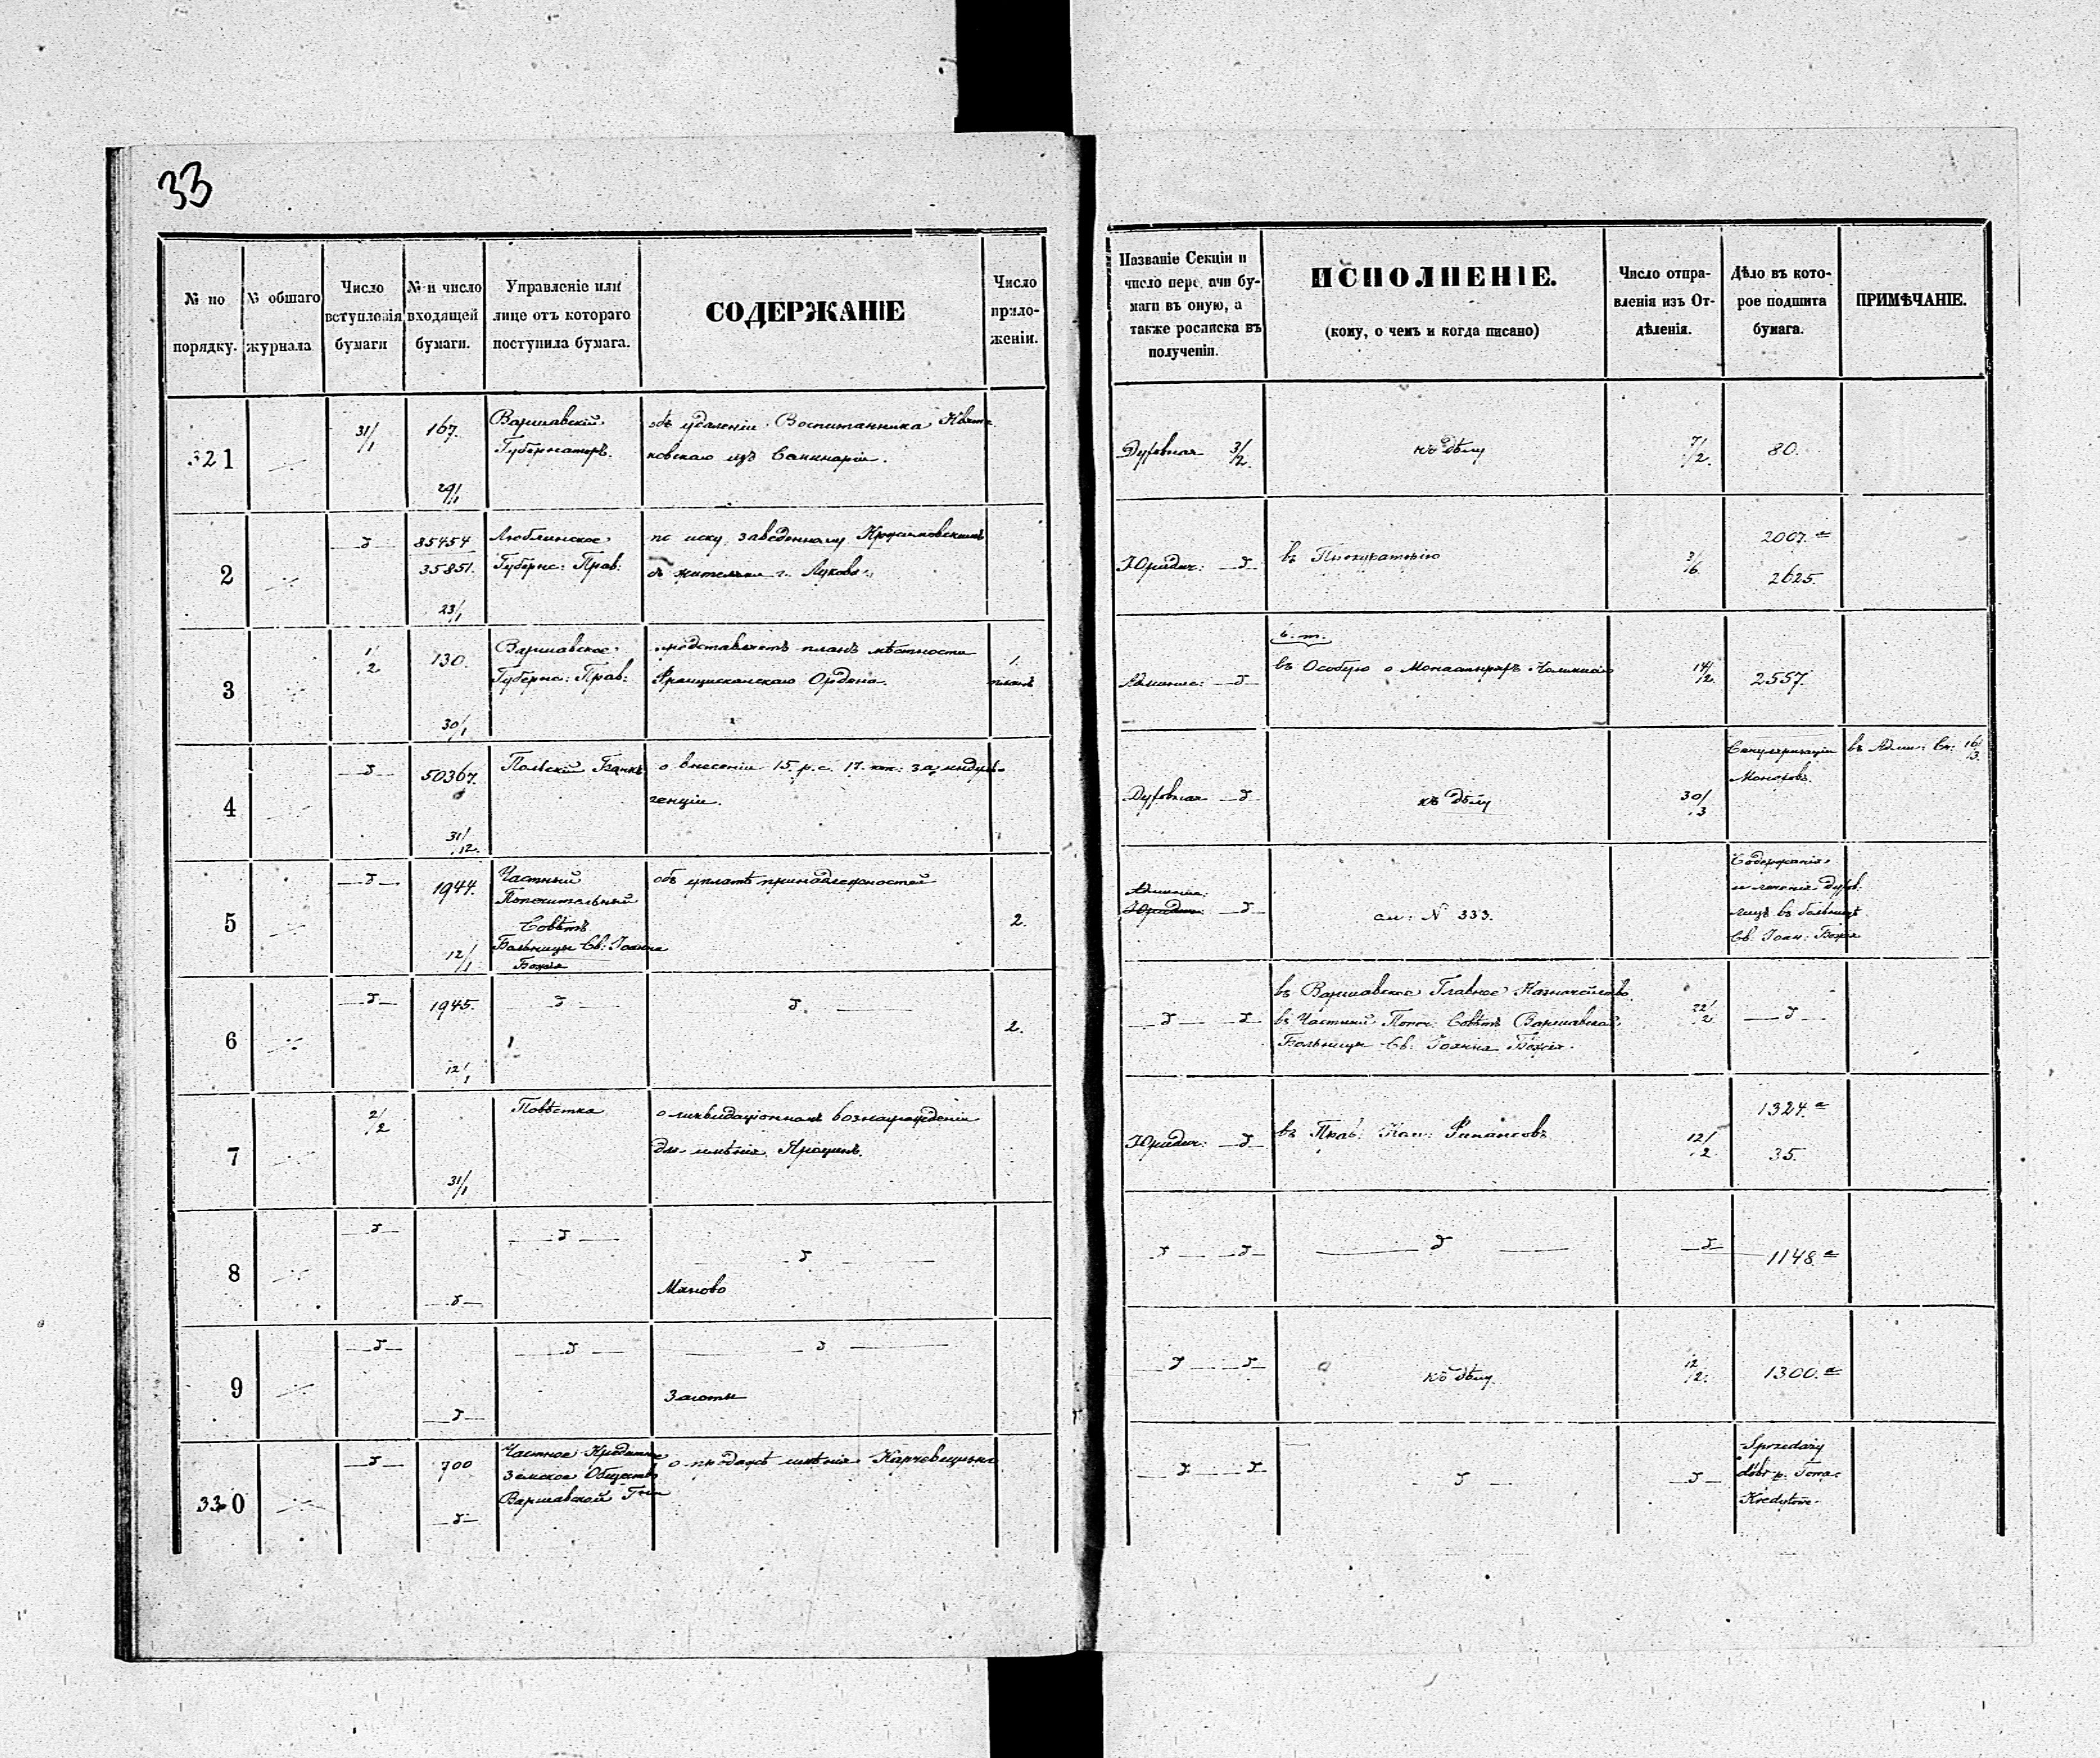 33
№ по порядку.
№ общаго журнала
Число вступленія бумаги
№ и число входящей бумаги.
Управленіе или лице отъ котораго поступила бумага.
СОДЕРЖАНІЕ
Число приложеніи.
Названіе Секціи и число передачи бумаги въ оную, а также росписка въ полученіи.
ИСПОЛНЕНІЕ.
(кому, о чемъ и когда писано)
Число отправленія изъ Отдѣленія.
Дѣло въ которое подшита бумага.
ПРИМѢЧАНІЕ.
321
31/1
167.
29/1
Варшавскій
Губернаторъ.
объ удаленіи Воспитанника
ковскаго изъ Семинаріи.
Духовная 3/2.
къ дѣлу
7/2.
80.
2
85454
35851.
23/1
Люблинское
Губернс: Прав:
по иску, заведенному
жителями г. Лукова
Юридич:
въ Прокураторію
2007.
2625.
3
1/2
130.
30/1
Варшавское
Губернс: Прав:
представляетъ планъ мѣстности
Францисканскаго Ордена.
1.
планъ
Админис:
въ Особую о Монастыряхъ
14/2.
2557.
4
50367.
31/12.
Польскій Банкъ
о внесеніи 15. р. с. 17. коп: за индуль-
генціи.
Духовная
къ дѣлу
30/3
Монаховъ.
въ Адми: Ск: 16/3.
5
1944.
12/1
Частный
Попечительный
Совѣтъ
Больницы Св: Іоанна
Божія
объ уплатѣ принадлежностей
2.
Админис:
Юридич:
ал: N 333.
Содержанія
и леченія духов:
лицъ въ больницѣ
Св: Іоан: Божія
6
1945.
12/1
2.
въ Варшавское Главное Казначейство.
въ Частный Попеч: Совѣтъ Варшавской
Больницы Св: Іоанна Божія.
22/2
7
2/2
31/1
Повѣстка
о ликвидаціонномъ вознагражденіи
для имѣнія
Юридич:
въ Прав: Ком: Финансовъ
12/2.
1324.
35.
8
1148
9
къ дѣлу.
12/2.
1300.
330
700
Частное Кредитное
Земское Общество
Варшавской Губ
о продажѣ имѣнія
Sprzedaży
dóbr p. Towa:
Kredytowe.